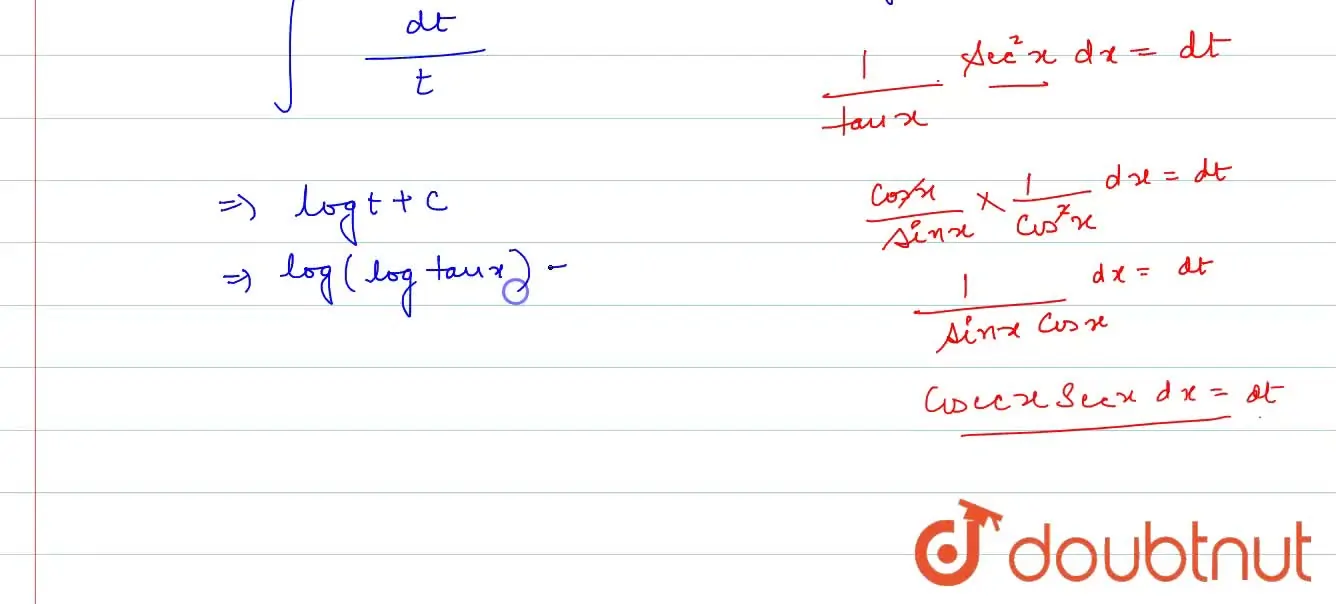 ∫ dt/t
⇒ log t + C
⇒ log(log tan x) -
1/tan x . sec²x dx = dt
cos x/sin x × 1/cos²x dx = dt
1/sin x cos x dx = dt
cosec x sec x dx = dt
doubtnut